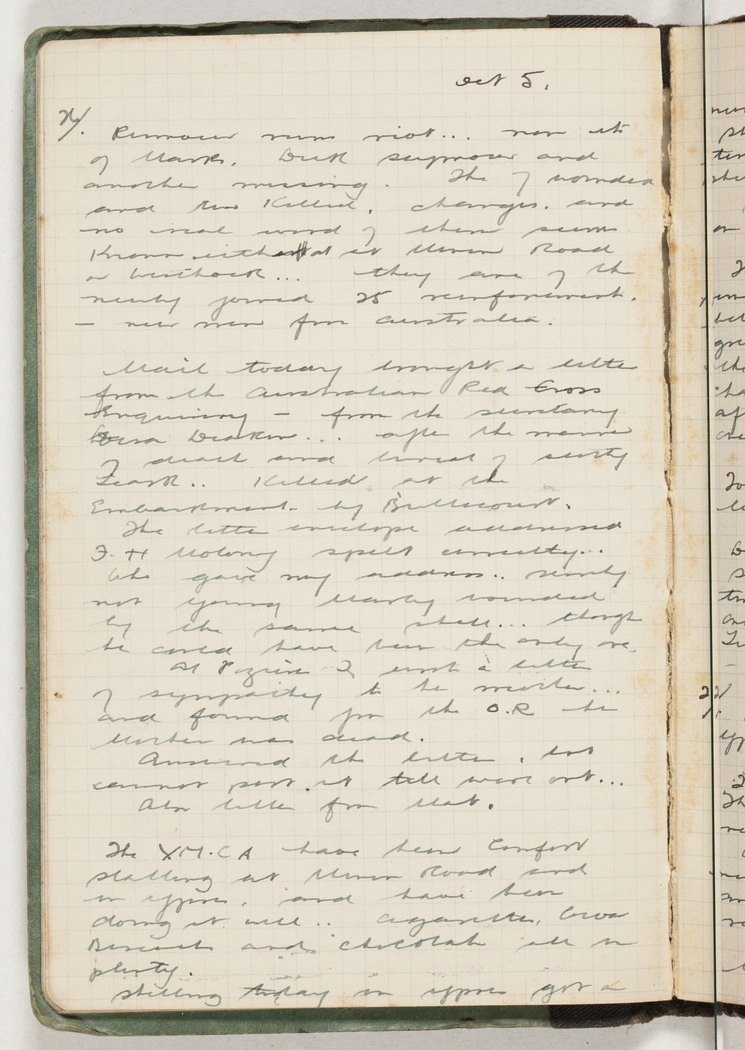 Oct 5.
Rumour runs riot... now its
of Mark. Dick Seymour and
another missing. The 7 wounded
and two Killed. changes. and
no real word of them seems
Known either at Menin Road
or Westhoek... they are of the
newly joined 25 reinforcement.
— new men from Australia.
Mail today brought a letter
from the Australian Red Cross
Enquiring — from the secretary
Vera Deakin... after the manner
of death and burial of
Killed at the
Embankment by Bullecourt.
The letter envelope addressed
F. H Molony spelt correctly...
Who gave my address.. surely
not young wounded
by the same shell... though
he could have been the only one.
At I wrote a letter
of sympathy to the mother...
and found from the O.R the
Mother was dead.
Answered the letter, but
cannot post it till we're out...
Also letter from Mat.
The Y.M.C A have been Comfort
stalling at Menin Road and
in Ypres, and have been
doing it well.. Cigarettes, Cocoa
Biscuits and chocolate all in
plenty.
today in Ypres got a